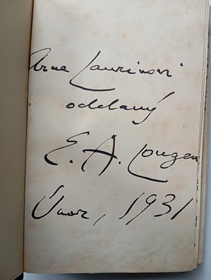 Arne Laurinovi
oddaný
E. A. Longen
Únor, 1931